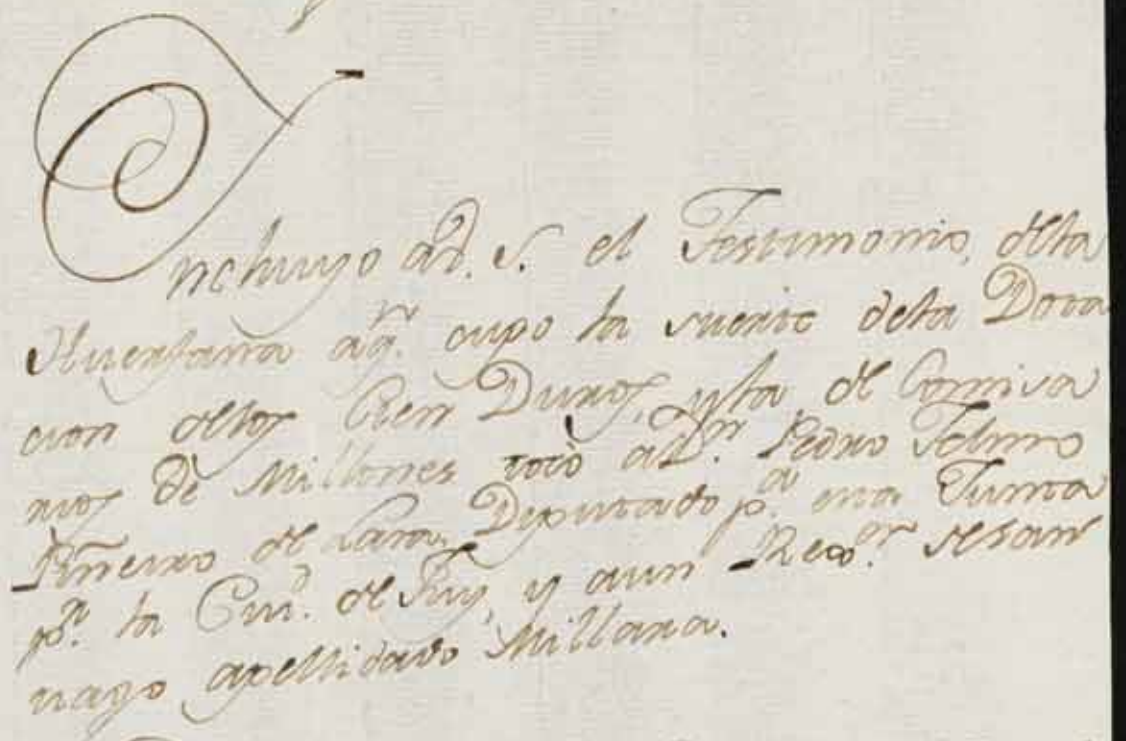 Yncluyo a V. S. el Testimonio, dela
Huerfana a qn. cupo la suerte dela Dota
cion delos Cien Duros, y la de Comisa
rios de Millones tocó a Dn. Pedro Telmo
Piñeiro de Lara, Deputado pa. esta Junta
pr. la Ciud. de Tuy, y a un Regor. de San
tiago apellidado Millara.